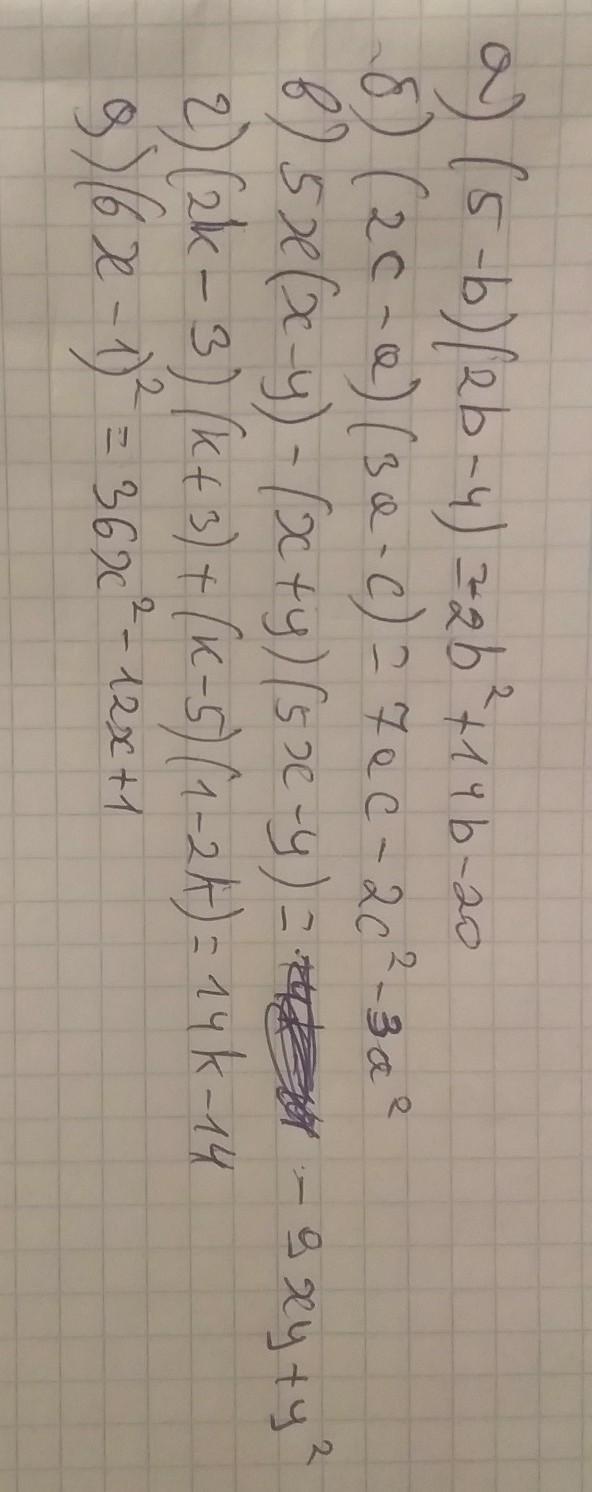 а) (5-b)(2b-4)=-2b²+14b-20
б) (2c-a)(3a-c)=7ac-2c²-3a²
в) 5x(x-y)-(x+y)(5x-y)= -9xy+y²
г) (2k-3)(k+3)+(k-5)(1-2k)=14k-14
д) (6x-1)²=36x²-12x+1